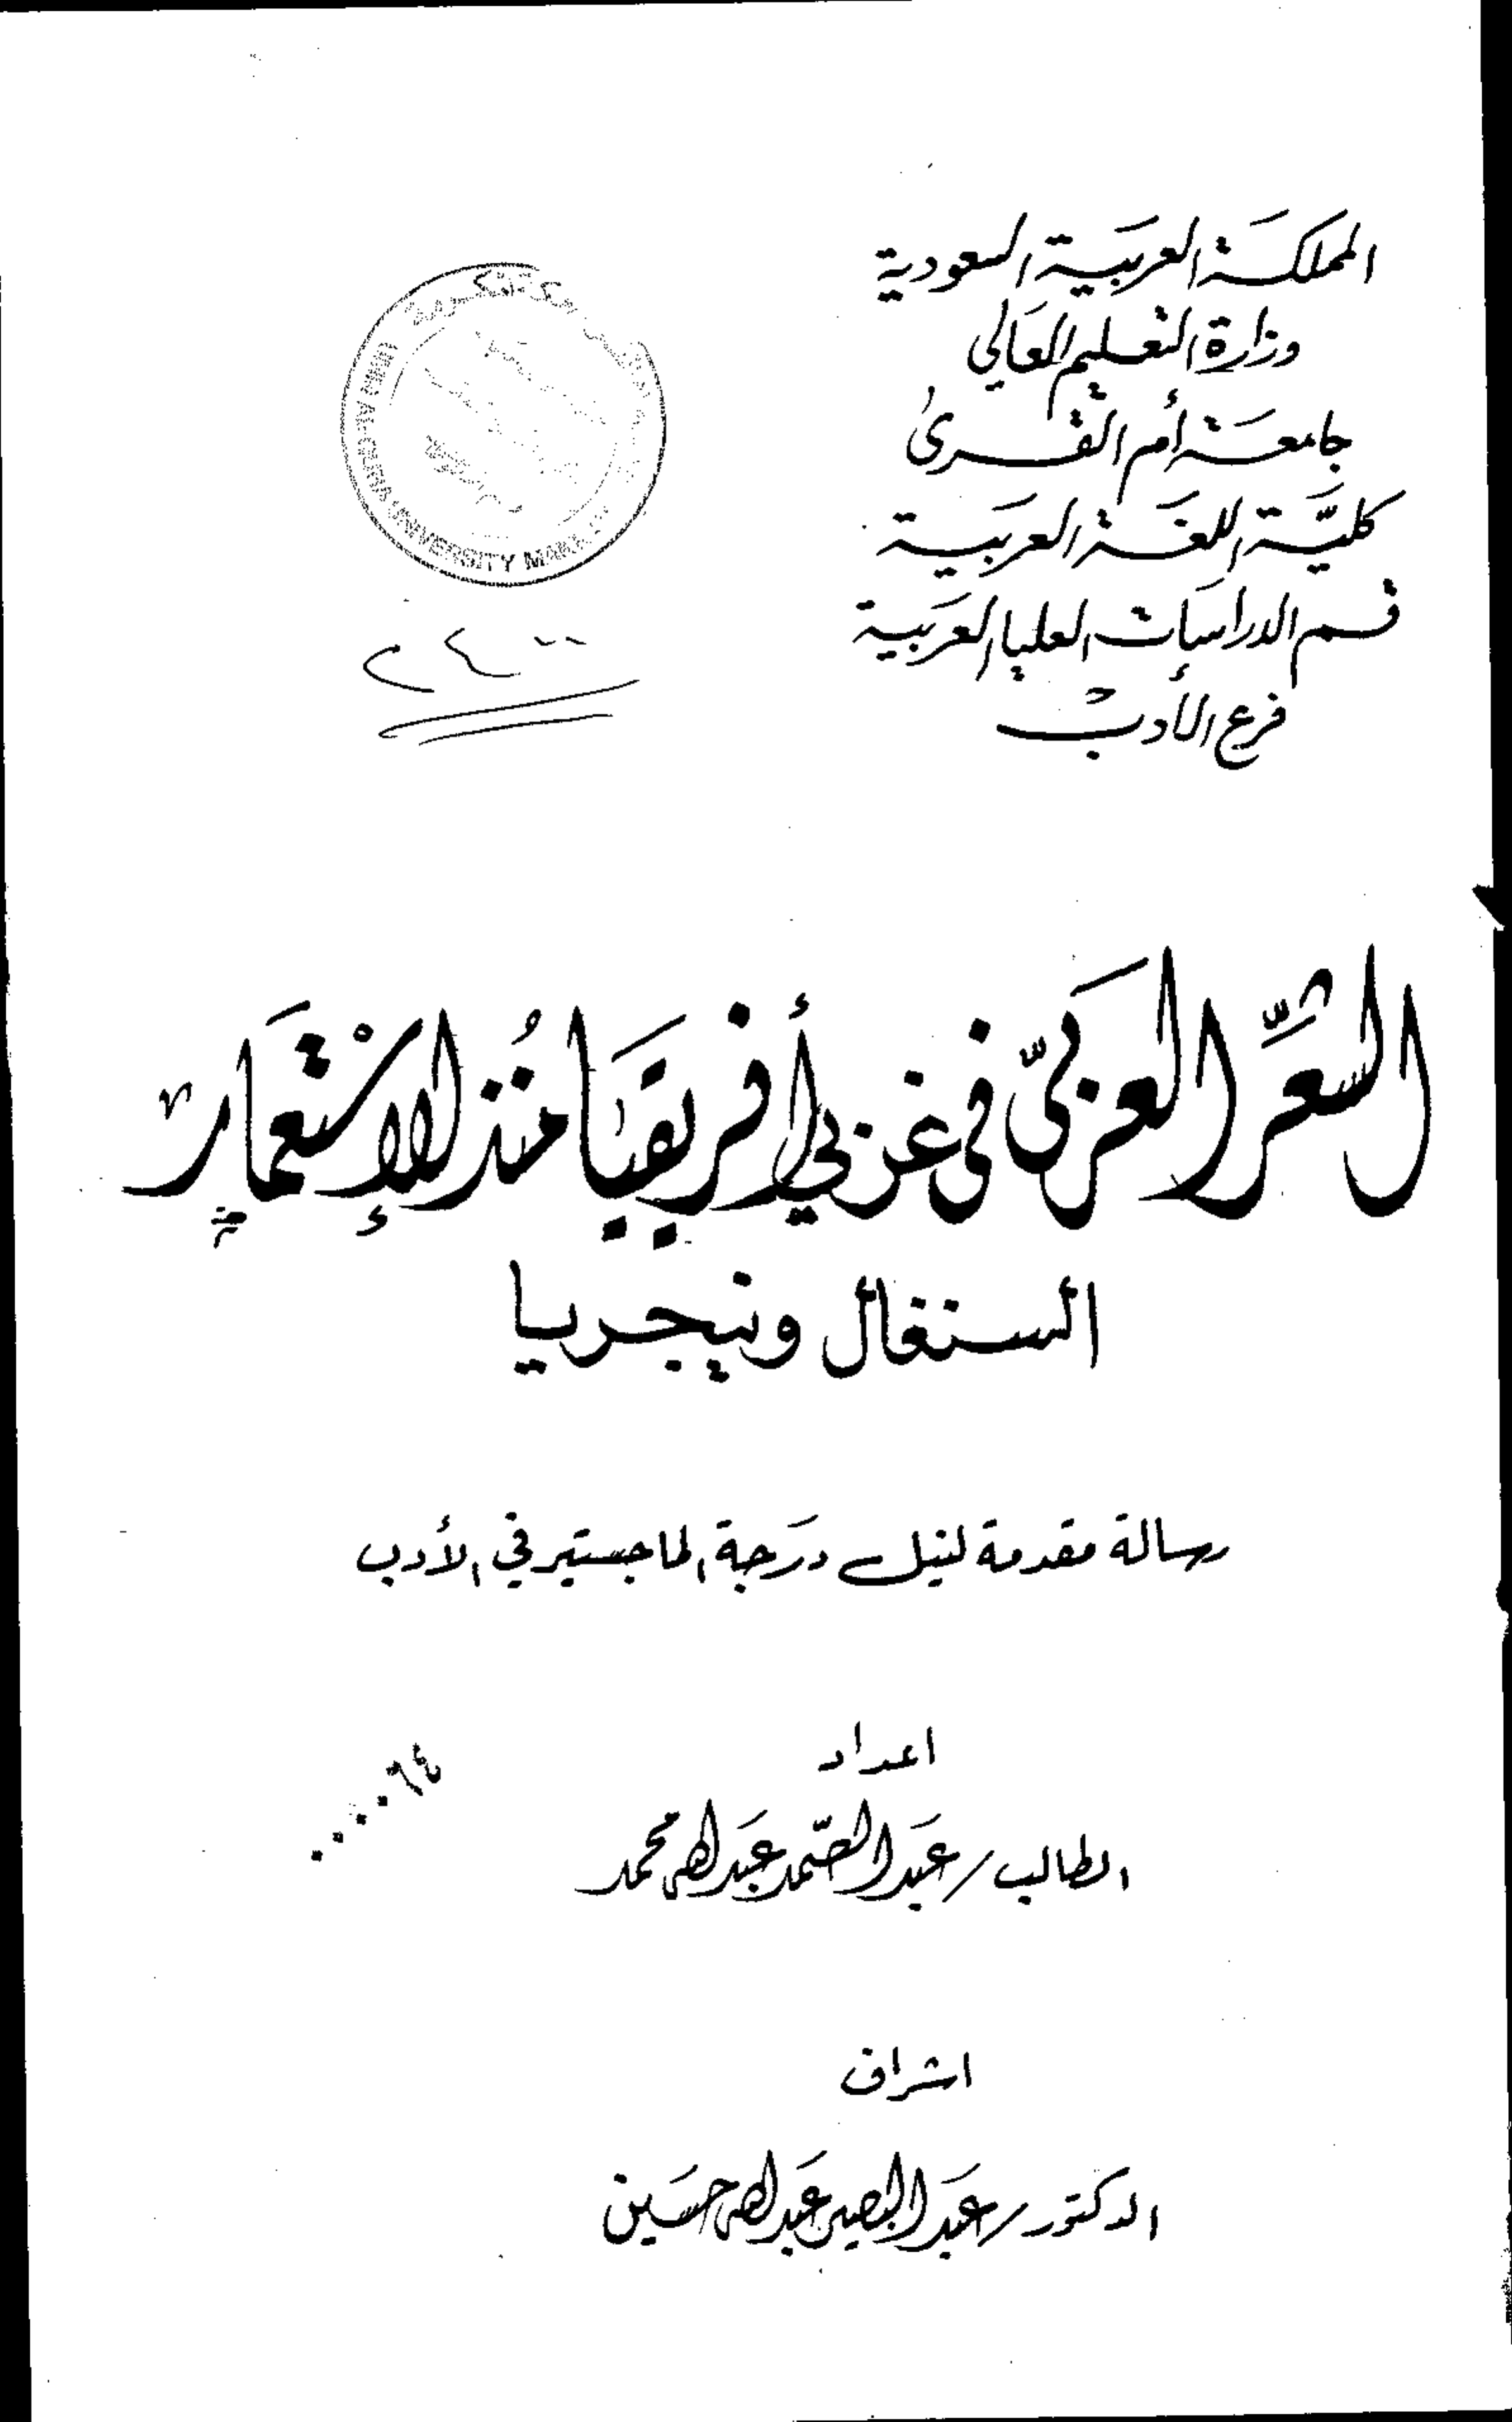 المملكة العربية السعودية
وزارة التعليم العالي
جامعة أم القرى
كلية اللغة العربية
قسم الدراسات العليا العربية
فرع الأدب
UMM AL-QURA UNIVERSITY
الشِّعر العَربيّ في غربي أفريقيَا مُنذ الإسْتعمَار
السنغال ونيجريا
رسالة مقدمة لنيل درَجة الماجستير في الأدب
اعداد
الطالب / عَبد الصّمد عَبد الله محمد
٠٠٠٠٦٤
اشراف
الدكتور / عَبد البصير عَبد الله حسَين